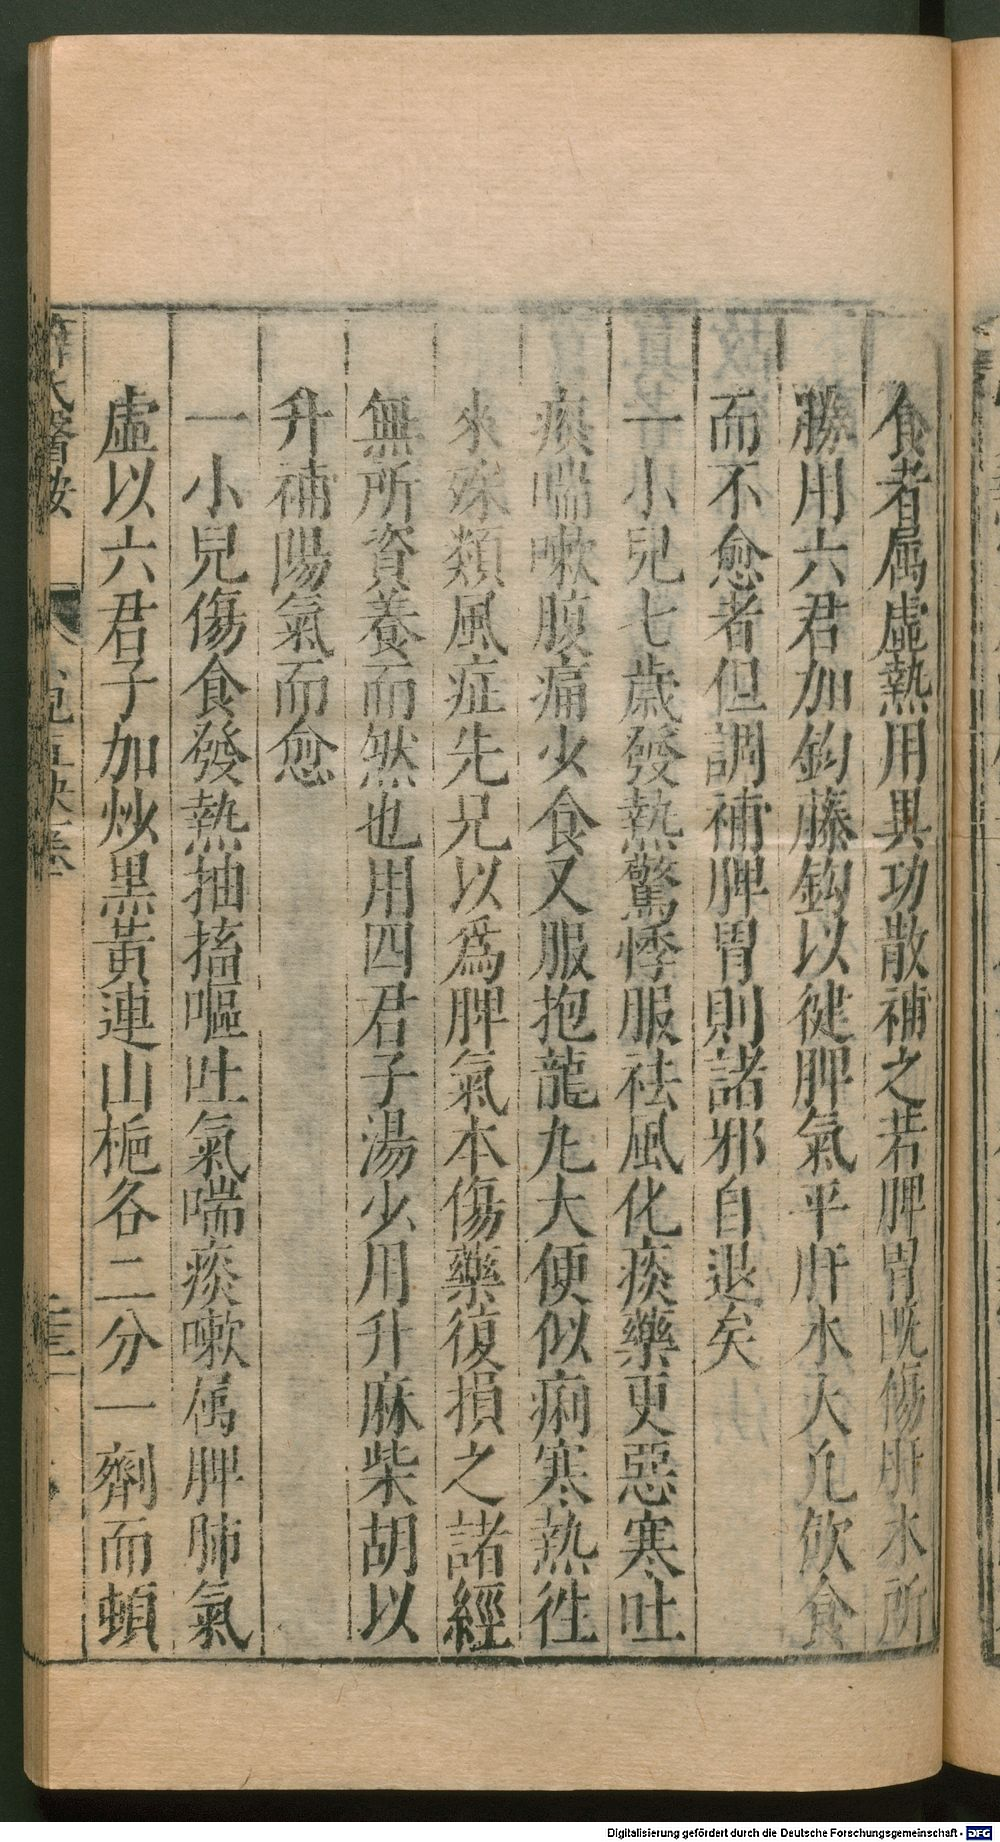 食者属虛熱用異功散補之若脾胃既傷肝木所
勝用六君加鈎藤鈎以徤脾氣平肝木大凢飲食
而不愈者但調補脾胃則諸邪自退矣
一小兒七歲發熱驚悸服祛風化痰藥更惡寒吐
痰喘嗽腹痛少食又服抱龍丸大便似痢寒熱徃
來殊類風症先兄以爲脾氣本傷藥復損之諸經
無所資養而然也用四君子湯少用升麻柴胡以
升補陽氣而愈
一小兒傷食發熱抽搐嘔吐氣喘痰嗽属脾肺氣
虛以六君子加炒黑黃連山梔各二分一劑而頓
薛氏醫按
Digitalisierung gefördert durch die Deutsche Forschungsgemeinschaft - DFG